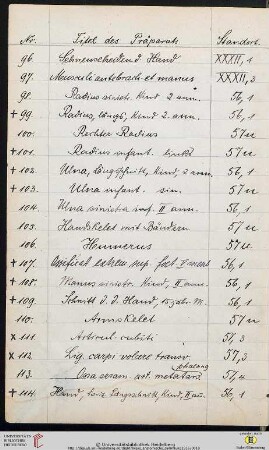 Nr. Titel des Präparats Standort.
96. Sehnenscheidend Hand XXXII, 1
97. Musculi antebrach. et manus XXXII, 3
98. Radius sinistr. Kind 2 ann. 56, 1
+ 99. Radius, längs, Kind 2. ann. 56, 1
100. Rechter Radius 57
+ 101. Radius infant. links 57
+ 102. Ulna, Längsschnitt, Kind, 2 ann. 56, 1
+ 103. Ulna infant. sin. 57
104. Ulna sinistra inf. II ann. 56, 1
105. Handskelet mit Bändern 57
106. Humerus 57
+ 107. Ossificat extrem sup. foet. V 56, 1
+ 108. Manus sinistr. Kind, II ann. 56, 1
+ 109. Schnitt d. d. Hand 15jähr. M. 56, 1
110. Armskelet 57
x 111 Articul. cubiti 57, 3
x 112 Lig. carpi volare transv. 57, 3
phalang
113. Ossa sesam. art. metatars 57, 4
+ 114. Hand, Längsschnitt, Kind, II ann. 56, 1
UNIVERSITÄTS-
BIBLIOTHEK
HEIDELBERG
© Universitätsbibliothek Heidelberg